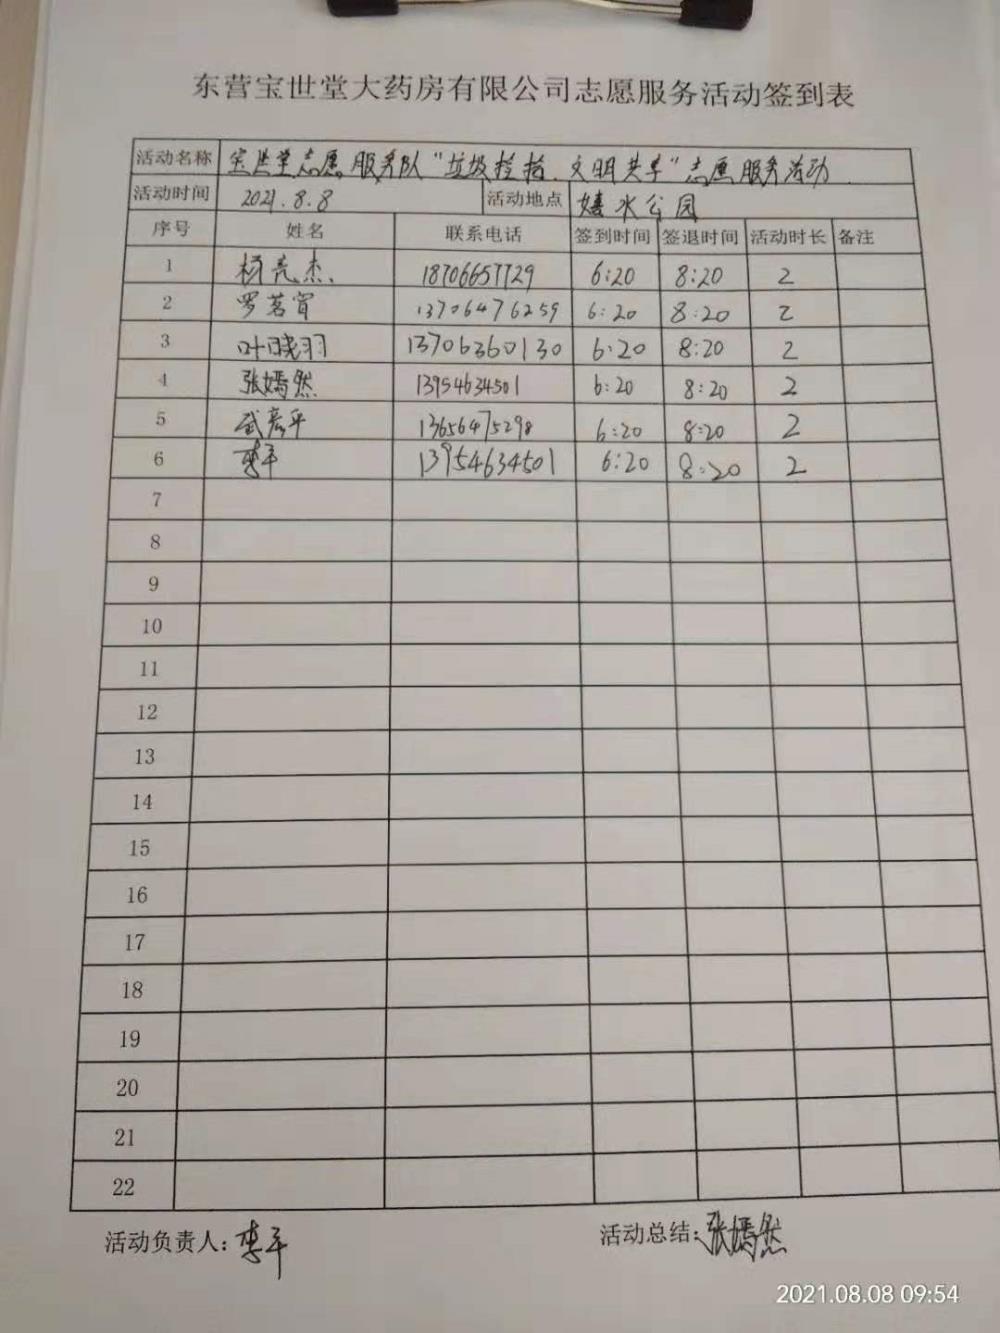 东营宝世堂大药房有限公司志愿服务活动签到表
活动名称 宝世堂志愿服务队"垃圾捡拾、文明共享"志愿服务活动
活动时间 2021.8.8 活动地点 嬉水公园
序号 姓名 联系电话 签到时间 签退时间 活动时长 备注
1 杨亮杰 18706657729 6:20 8:20 2
2 罗茗宵 13706476259 6:20 8:20 2
3 叶晓羽 13706360130 6:20 8:20 2
4 张嫣然 13954634501 6:20 8:20 2
5 武彦平 13656475298 6:20 8:20 2
6 李平 13954634501 6:20 8:20 2
7
8
9
10
11
12
13
14
15
16
17
18
19
20
21
22
活动负责人：李平 活动总结：张嫣然
2021.08.08 09:54